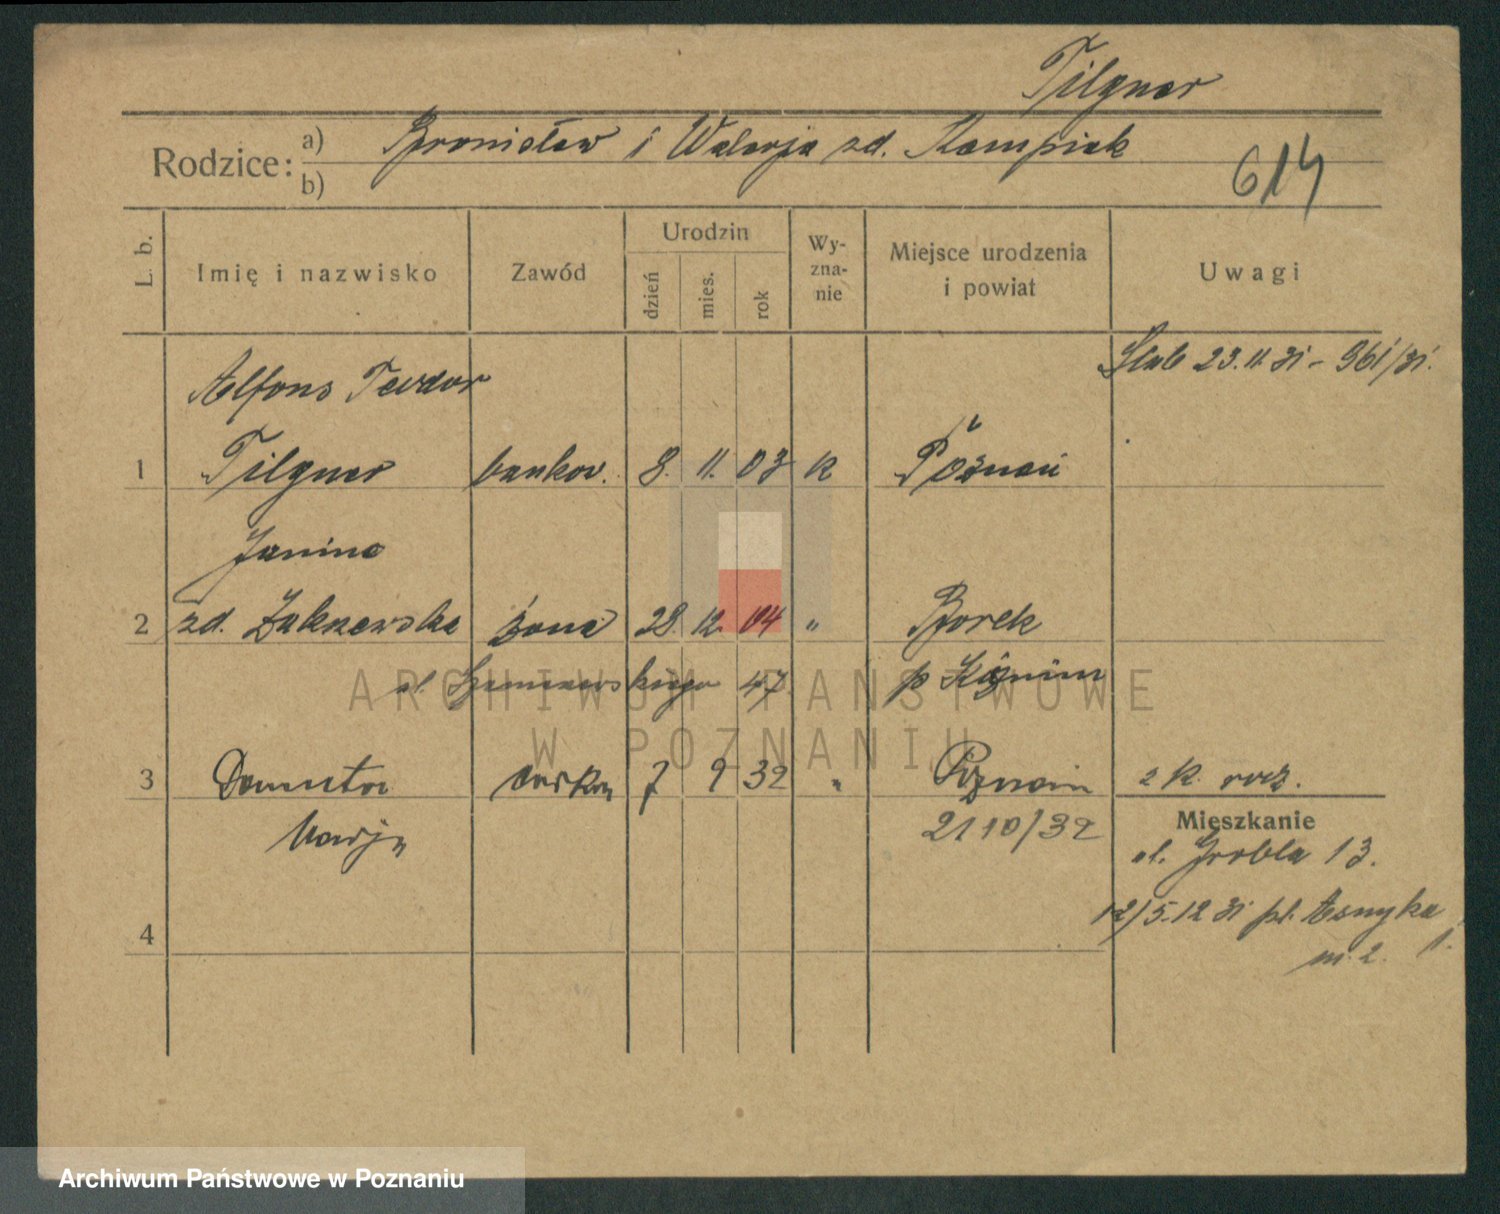 Tilgner
Rodzice:
a) Bronisław i Walerja zd. Kempiak
b)
614
L. b.
Imię i nazwisko
Zawód
Urodzin
dzień
mies.
rok
Wy-
zna-
nie
Miejsce urodzenia
i powiat
Uwagi
Ślub 23.11.31 - 961/31.
Alfons Teodor
1 Tilgner bankow. 8. 11. 03 k Poznań
Janina
2 zd. Żakrzewska żona 28. 12. 04 " Borek
ul. 47 p Koźmin
3 Danuta córka 7 9 32 " Poznań z k. rodz.
Marja 21 10/32
Mieszkanie
ul. Grobla 13.
12/5.12 31 pl. Asnyka 1.
m. 2.
4
ARCHIWUM PAŃSTWOWE
W POZNANIU
Archiwum Państwowe w Poznaniu